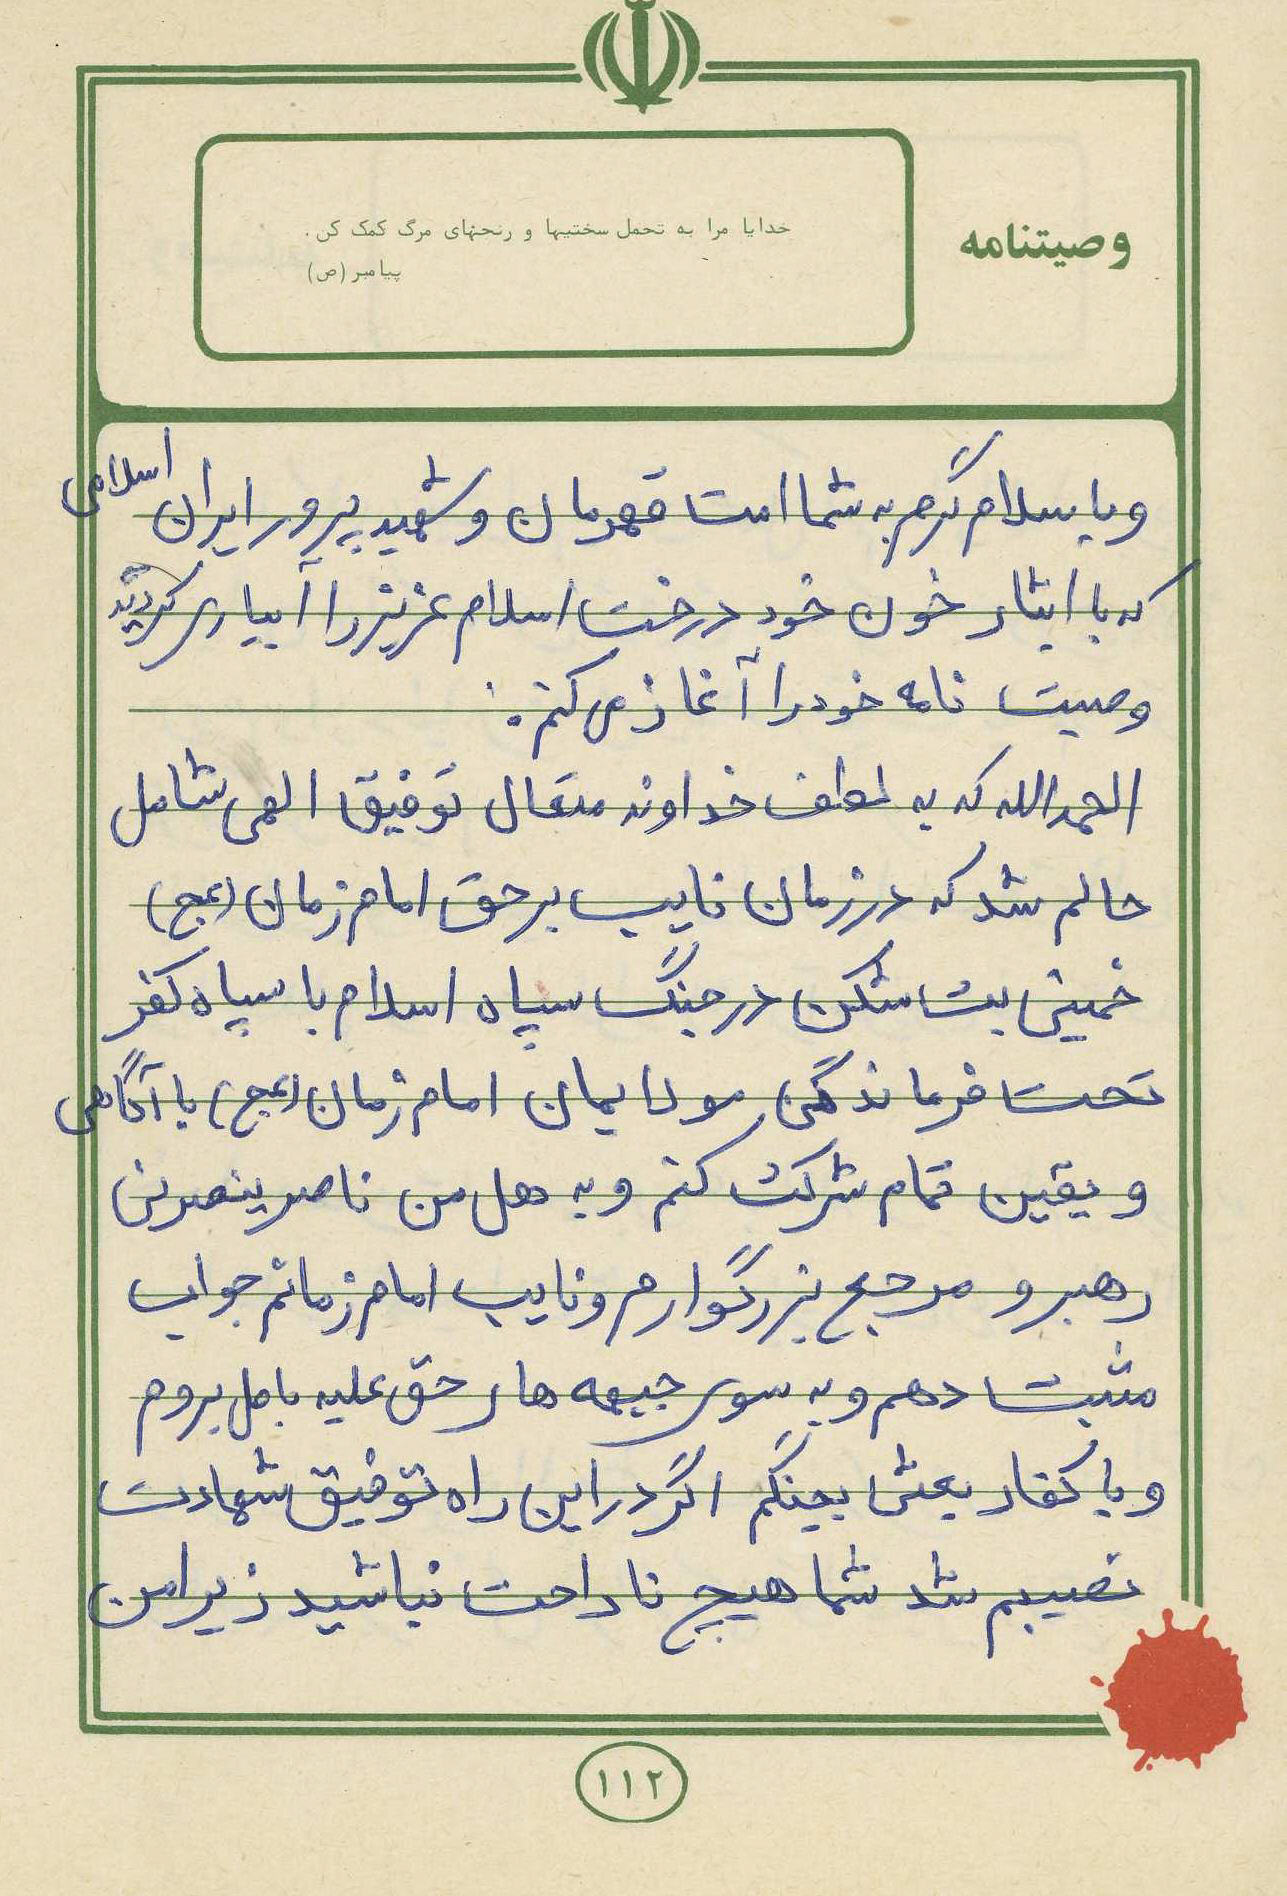 وصیتنامه
خدایا مرا به تحمل سختیها و رنجهای مرگ کمک کن.
پیامبر (ص)
و با سلام گرم به شما امت قهرمان و شهید پرور ایران اسلامی
که با ایثار خون خود درخت اسلام عزیز را آبیاری کردید
وصیت نامه خود را آغاز می کنم:
الحمدالله که به لطف خداوند متعال توفیق الهی شامل
حالم شد که در زمان نایب بر حق امام زمان (عج)
خمینی بت شکن در جنگ سپاه اسلام با سپاه کفر
تحت فرماندگهی مولایمان امام زمان (عج) با آگاهی
و یقین تمام شرکت کنم و به هل من ناصر ینصرنی
رهبر و مرجع بزرگوارم و نایب امام زمانم جواب
مثبت دهم و به سوی جبهه های حق علیه باطل بروم
و با کفار بعثی بجنگم اگر در این راه توفیق شهادت
نصیبم شد شما هیچ ناراحت نباشید زیرا من
۱۱۲